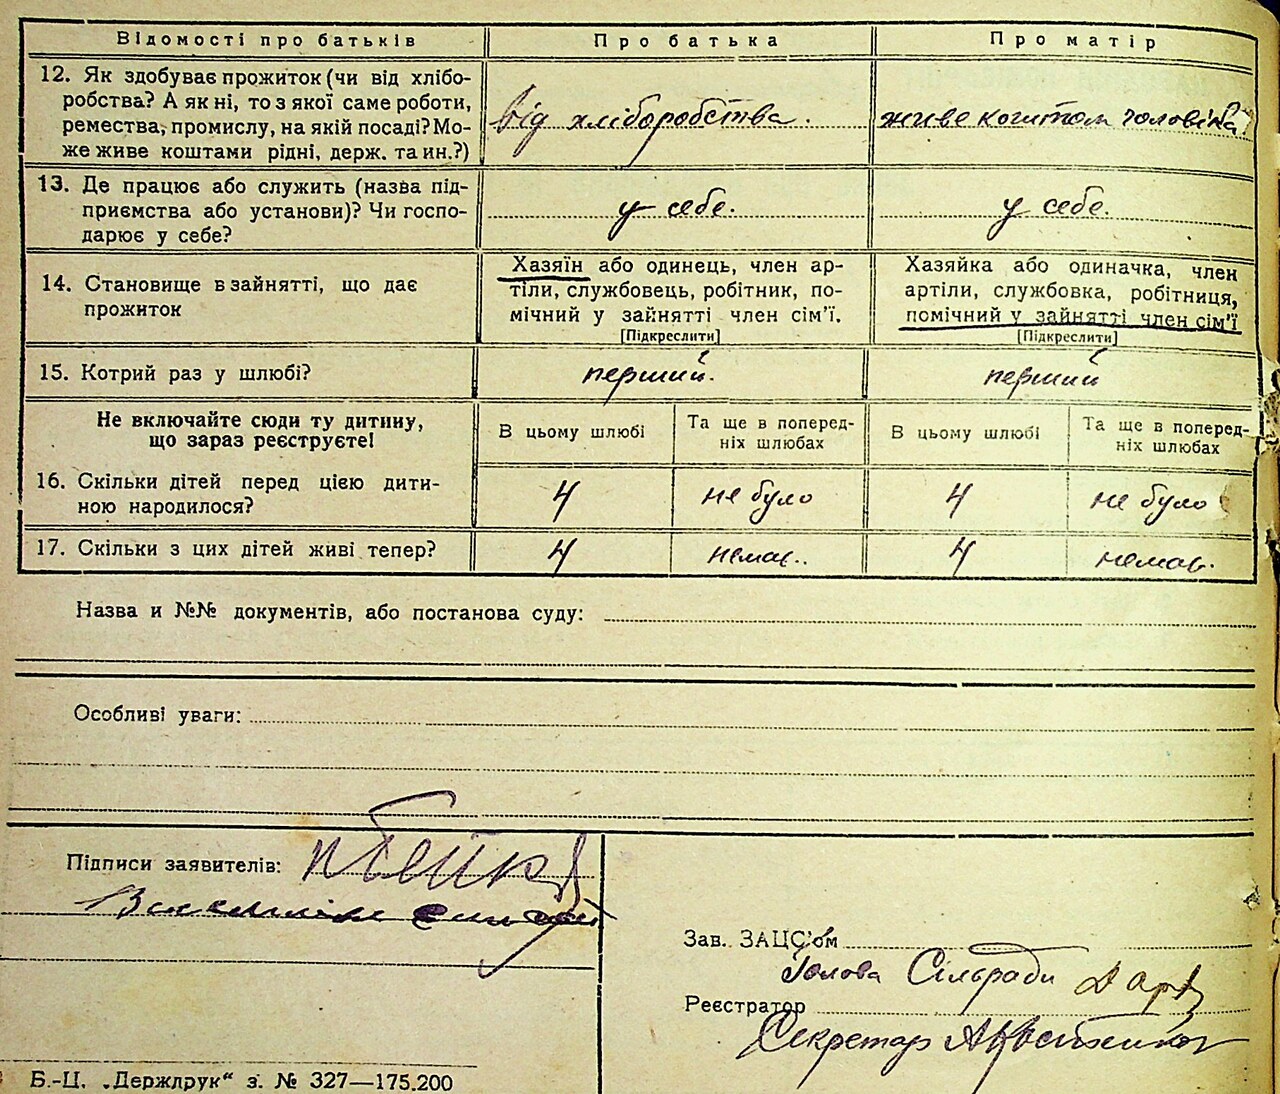 Відомості про батьків
Про батька
Про матір
12. Як здобуває прожиток (чи від хлібо-
робства? А як ні, то з якої саме роботи,
ремества, промислу, на якій посаді? Мо-
же живе коштами рідні, держ. та ин.?)
від хліборобства.
живе коштом чоловіка
13. Де працює або служить (назва під-
приємства або установи)? Чи госпо-
дарює у себе?
у себе.
у себе.
14. Становище в зайнятті, що дає
прожиток
Хазяїн або одинець, член ар-
тіли, службовець, робітник, по-
мічний у зайнятті член сім'ї.
[Підкреслити]
Хазяйка або одиначка, член
артіли, службовка, робітниця,
помічний у зайнятті член сім'ї
[Підкреслити]
15. Котрий раз у шлюбі?
перший.
перший
Не включайте сюди ту дитину,
що зараз реєструєте!
В цьому шлюбі
Та ще в поперед-
ніх шлюбах
В цьому шлюбі
Та ще в поперед-
ніх шлюбах
16. Скільки дітей перед цією дити-
ною народилося?
4
не було
4
не було
17. Скільки з цих дітей живі тепер?
4
немає.
4
немає.
Назва и №№ документів, або постанова суду:
Особливі уваги:
Підписи заявителів:
Зав. ЗАЦС'ом
Голова Сільради
Реєстратор
Секретар
Б.-Ц. „Держдрук“ з. № 327—175.200